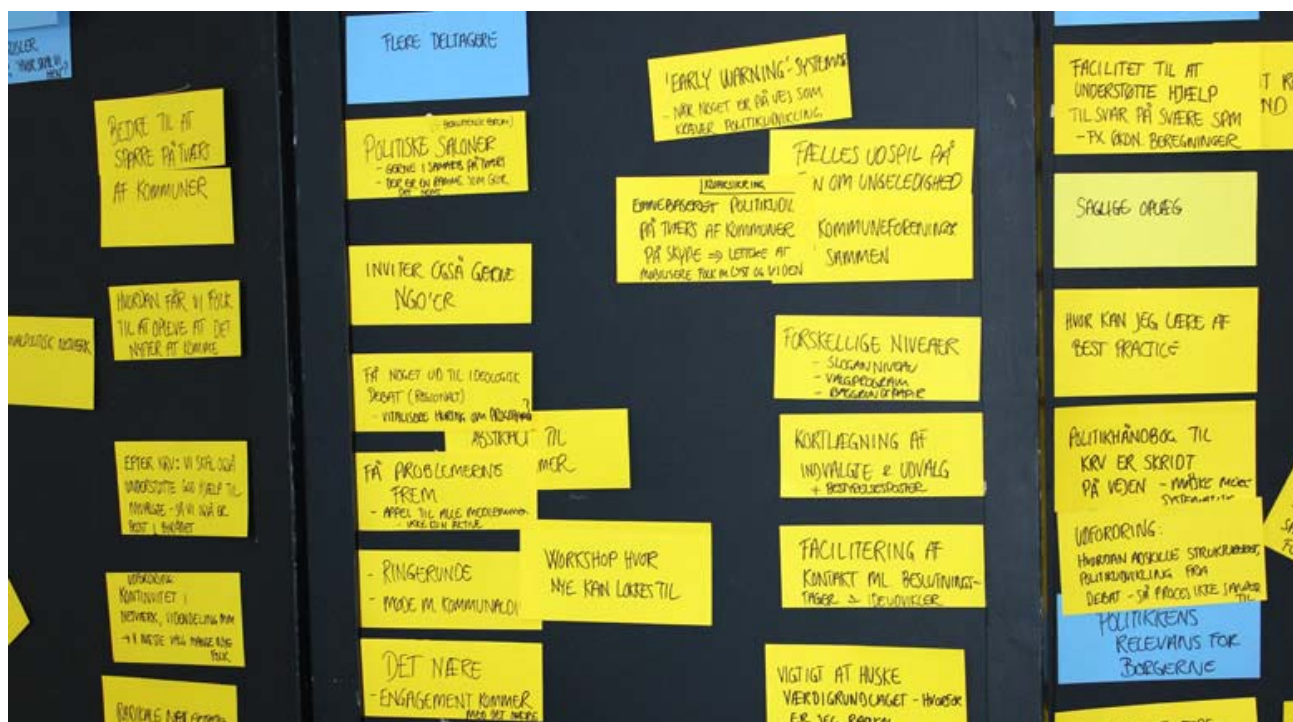 BEDRE TIL AT
SPARRE PÅ TVÆRS
AF KOMMUNER
HVORDAN FÅR VI FOLK
TIL AT OPLEVE AT DET
NYTTER AT KOMME
EFTER KRV: VI SKAL OGSÅ
UNDERSTØTTE OG HJÆLP TIL
NYVALGTE - SÅ VI OGSÅ ER
BEST I BYRÅDET
UDFORDRING
KONTINUITET I
NETVÆRK, VIDENDELING MM
→ V NÆSTE VALG MANGE NYE
FOLK
RADIKALE
FLERE DELTAGERE
POLITISKE SALONER
- GERNE I SAMARB PÅ TVÆRS
- DER ER EN RAMME SOM GØR
DET NEMT
INVITER OGSÅ GERNE
NGO'ER
FÅ NOGET UD TIL IDEOLOGISK
DEBAT (REGIONALT)
- VITALISERE HØRING OM
TIL
FÅ PROBLEMERNE
FREM
- APPEL TIL ALLE MEDLEMMER
- IKKE KUN AKTIVE
- RINGERUNDE
- MØDE M. KOMMUNALDI
WORKSHOP HVOR
NYE KAN LOKKES TIL
DET NÆRE
- ENGAGEMENT KOMMER
MED DET NÆRE
'EARLY WARNING'-SYSTEMER
- NÅR NOGET ER PÅ VEJ SOM
KRÆVER POLITIKUDVIKLING
FÆLLES UDSPIL PÅ
N OM UNGELEDIGHED
KOMMUNEFORENINGER
SAMMEN
KVALSIKRING
EMNEBASERET POLITIKUDV
PÅ TVÆRS AF KOMMUNER
PÅ SKYPE ⇒ LETTERE AT
MOBILISERE FOLK M LYST OG VIDEN
FORSKELLIGE NIVEAUER
- SLOGAN NIVEAU
- VALGPROGRAM
- BAGGRUNDSPAPIR
KORTLÆGNING AF
INDVALGTE & UDVALG
+ BESTYRELSESPOSTER
FACILITERING AF
KONTAKT ML. BESLUTNINGS-
TAGER & IDEUDVIKLER
VIGTIGT AT HUSKE
VÆRDIGRUNDLAGET - HVORFOR
ER JEG
FACILITET TIL AT
UNDERSTØTTE HJÆLP
TIL SVAR PÅ SVÆRE SPM
- FX ØKON. BEREGNINGER
SAGLIGE OPLÆG
HVOR KAN JEG LÆRE AF
BEST PRACTICE
POLITIKHÅNDBOG TIL
KRV ER SKRIDT
PÅ VEJEN - MÅSKE MERE
SYSTEMATISK
UDFORDRING:
HVORDAN ADSKILLE STRUKTURERET
POLITIKUDVIKLING FRA
DEBAT - SÅ PROCES IKKE SANDER
TIL
POLITIKKENS
RELEVANS FOR
BORGERNE